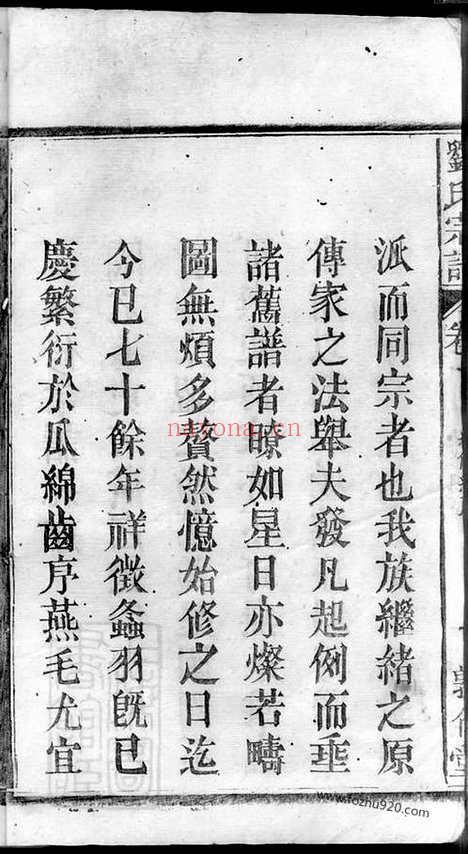 劉氏宗譜
卷
派而同宗者也我族繼緒之原
傳家之法舉夫發凡起例而垂
諸舊譜者瞭如星日亦燦若疇
圖無煩多贅然憶始修之日迄
今已七十餘年祥徵螽羽旣已
慶繁衍於瓜綿齒序燕毛尤宜
nayona.cn
www.fozhu920.com